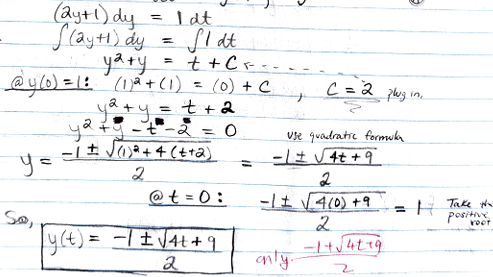 (2y+1) dy = 1 dt
∫(2y+1) dy = ∫1 dt
y² + y = t + C
@y(0)=1: (1)² + (1) = (0) + C , C = 2 plug in.
y² + y = t + 2
y² + y - t - 2 = 0
use quadratic formula
y = (-1 ± √((1)² + 4(t+2)))/2 = (-1 ± √(4t+9))/2
@ t = 0: (-1 ± √(4(0)+9))/2 = 1 Take the positive root
So, y(t) = (-1 ± √(4t+9))/2
only. (-1+√(4t+9))/2